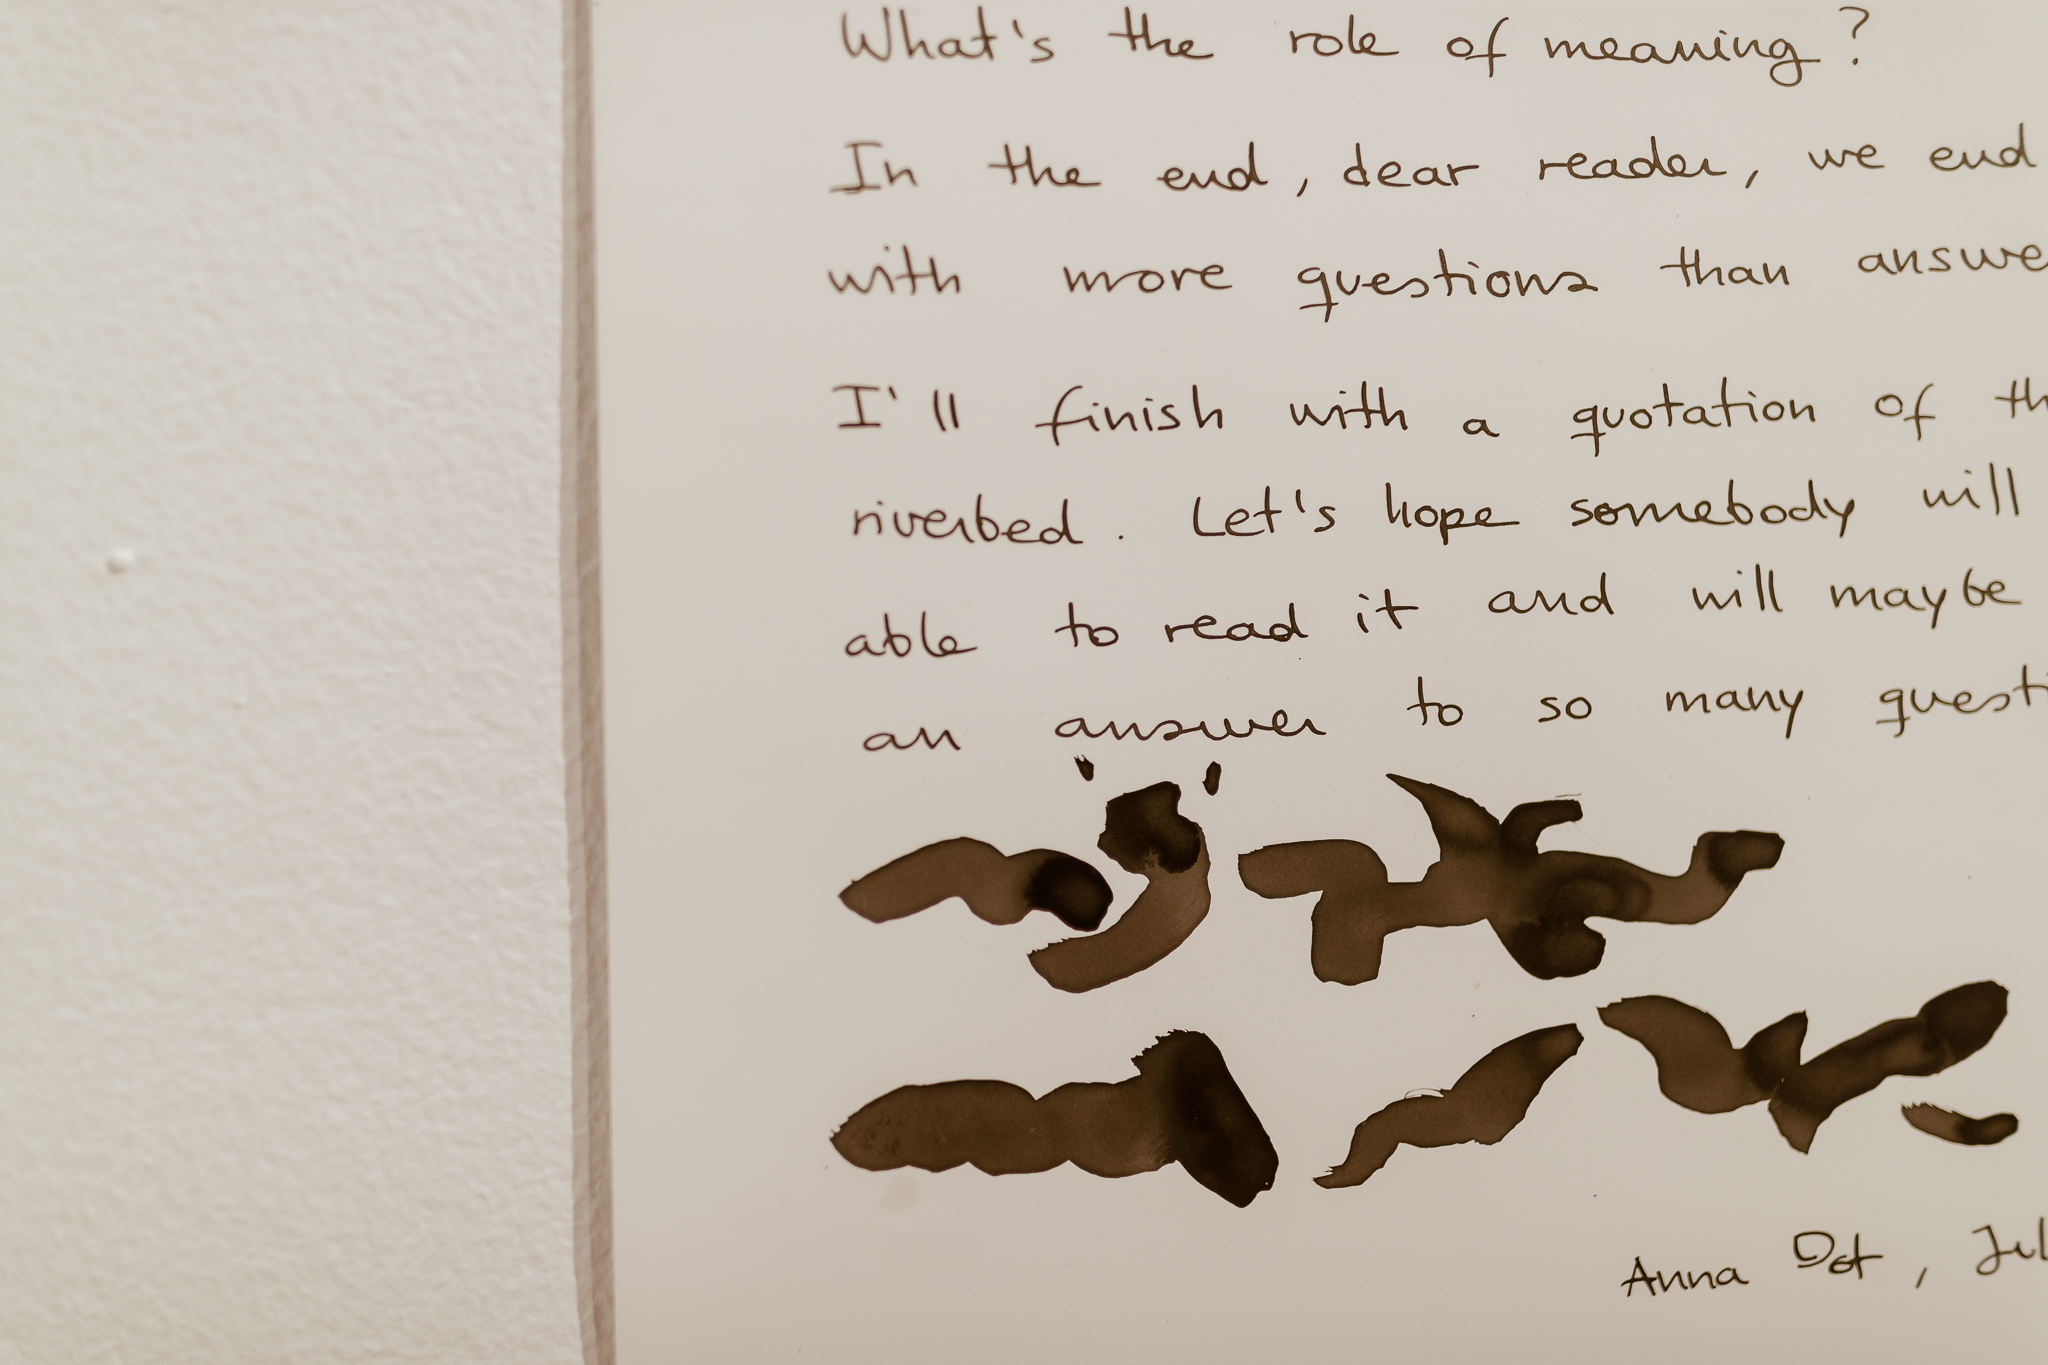 What's the role of meaning?
In the end, dear reader, we end
with more questions than answe
I'll finish with a quotation of th
riverbed. Let's hope somebody will
able to read it and will maybe
an answer to so many questi
Anna Dot, Jul